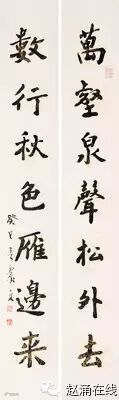 萬壑泉聲松外去
數行秋色雁邊来
赵涌在线